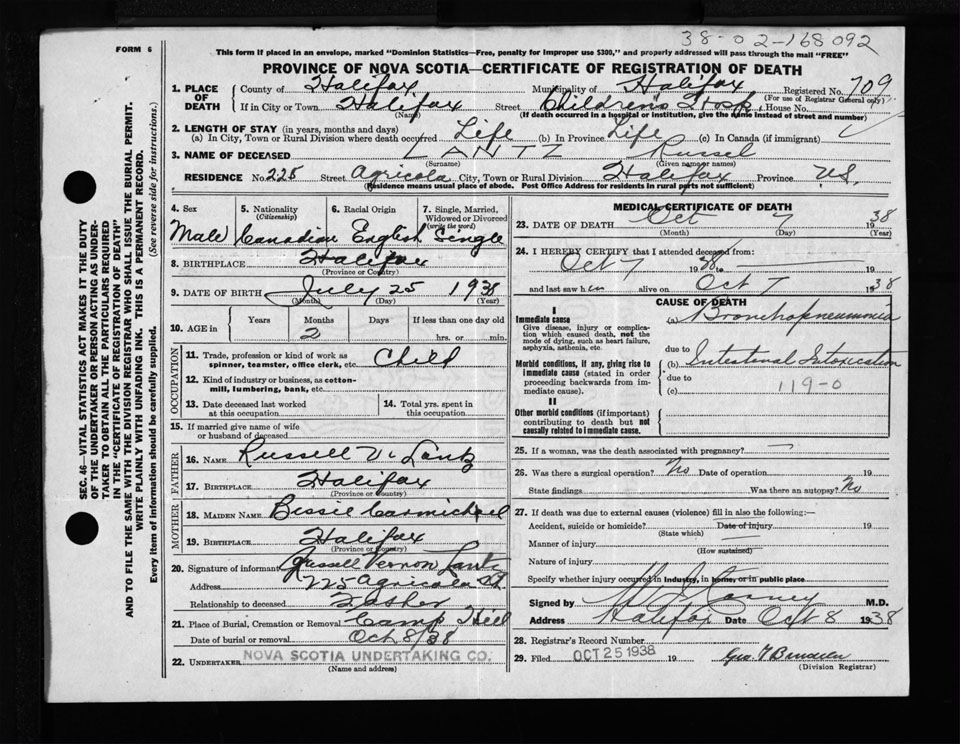 38-02-168092
FORM 6
This form if placed in an envelope, marked "Dominion Statistics—Free, penalty for improper use $300," and properly addressed will pass through the mail "FREE"
PROVINCE OF NOVA SCOTIA—CERTIFICATE OF REGISTRATION OF DEATH
SEC. 46—VITAL STATISTICS ACT MAKES IT THE DUTY
OF THE UNDERTAKER OR PERSON ACTING AS UNDER-
TAKER TO OBTAIN ALL THE PARTICULARS REQUIRED
IN THE "CERTIFICATE OF REGISTRATION OF DEATH"
AND TO FILE THE SAME WITH THE DIVISION REGISTRAR WHO SHALL ISSUE THE BURIAL PERMIT.
WRITE PLAINLY WITH UNFADING INK. THIS IS A PERMANENT RECORD.
Every item of information should be carefully supplied. (See reverse side for instructions.)
1. PLACE OF DEATH County of Halifax Municipality of Halifax Registered No. 709
(For use of Registrar General only)
If in City or Town Halifax Street Children's Hosp House No.
(Name) (If death occurred in a hospital or institution, give the name instead of street and number)
2. LENGTH OF STAY (in years, months and days)
(a) In City, Town or Rural Division where death occurred Life (b) In Province Life (c) In Canada (if immigrant)
3. NAME OF DECEASED LANTZ Russel
(Surname) (Given name or names)
RESIDENCE No. 225 Street Agricola City, Town or Rural Division Halifax Province NS.
(Residence means usual place of abode. Post Office Address for residents in rural parts not sufficient)
4. Sex 5. Nationality (Citizenship) 6. Racial Origin 7. Single, Married, Widowed or Divorced (write the word)
Male Canadian English Single
8. BIRTHPLACE Halifax
(Province or Country)
9. DATE OF BIRTH July 25 1938
(Month) (Day) (Year)
10. AGE in Years Months Days If less than one day old
2 hrs. or min.
OCCUPATION
11. Trade, profession or kind of work as spinner, teamster, office clerk, etc. Child
12. Kind of industry or business, as cotton-mill, lumbering, bank, etc.
13. Date deceased last worked at this occupation 14. Total yrs. spent in this occupation
15. If married give name of wife or husband of deceased
FATHER
16. NAME Russell V. Lantz
17. BIRTHPLACE Halifax
(Province or Country)
MOTHER
18. MAIDEN NAME Bessie Carmichael
19. BIRTHPLACE Halifax
(Province or Country)
20. Signature of informant Russell Vernon Lantz
Address 225 Agricola St
Relationship to deceased Father
21. Place of Burial, Cremation or Removal Camp Hill
Date of burial or removal Oct 8/38
22. UNDERTAKER NOVA SCOTIA UNDERTAKING CO.
(Name and address)
MEDICAL CERTIFICATE OF DEATH
23. DATE OF DEATH Oct 7 1938
(Month) (Day) (Year)
24. I HEREBY CERTIFY that I attended deceased from:
Oct 7 1938 to 19
and last saw him alive on Oct 7 1938
CAUSE OF DEATH
I
Immediate cause (a) Bronchopneumonia
Give disease, injury or complication which caused death, not the mode of dying, such as heart failure, asphyxia, asthenia, etc.
due to
Morbid conditions, if any, giving rise to immediate cause (stated in order proceeding backwards from immediate cause). (b) Intestinal Intoxication
due to
(c) 119-0
II
Other morbid conditions (if important) contributing to death but not causally related to immediate cause.
25. If a woman, was the death associated with pregnancy? —
26. Was there a surgical operation? No Date of operation 19
State findings Was there an autopsy? No
27. If death was due to external causes (violence) fill in also the following:—
Accident, suicide or homicide? Date of injury 19
(State which)
Manner of injury
(How sustained)
Nature of injury
Specify whether injury occurred in industry, in home, or in public place
Signed by M.D.
Address Halifax Date Oct 8 1938
28. Registrar's Record Number
29. Filed OCT 25 1938 19
(Division Registrar)